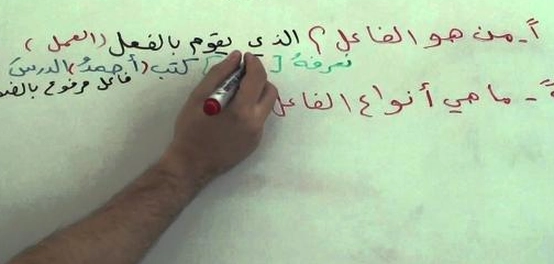 أ- من هو الفاعل؟ الذي يقوم بالفعل (العمل)
نعرفه [ ] كتب (أحمدُ) الدرسَ
فاعل مرفوع
- ما هي أنواع الفاعل